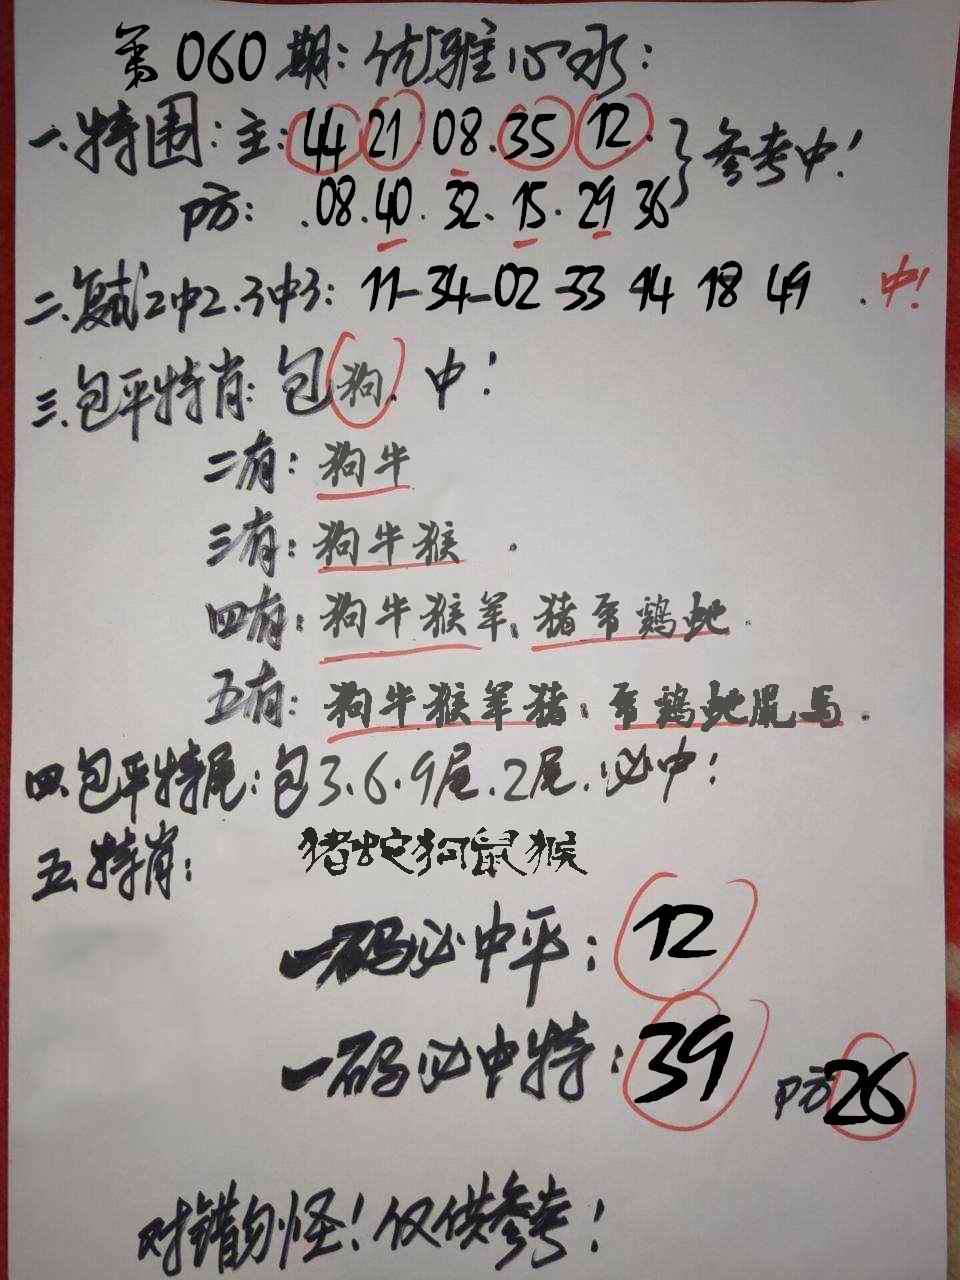 第060期:优雅心水:
一.特围:主:44 21 08.35 12.
参考中!
防:.08.40.32.15.29 36
二.复式2中2.3中3:11-34-02-33 14 18 49.中!
三.包平特肖:包狗.中!
二有:狗牛
三有:狗牛猴.
四有:狗牛猴羊;猪兔鸡蛇.
五有:狗牛猴羊猪;兔鸡蛇鼠马.
四.包平特尾:包3.6.9尾.2尾.必中!
五.特肖:猪蛇狗鼠猴
一码必中平:12
一码必中特:39 防26
对错勿怪!仅供参考!